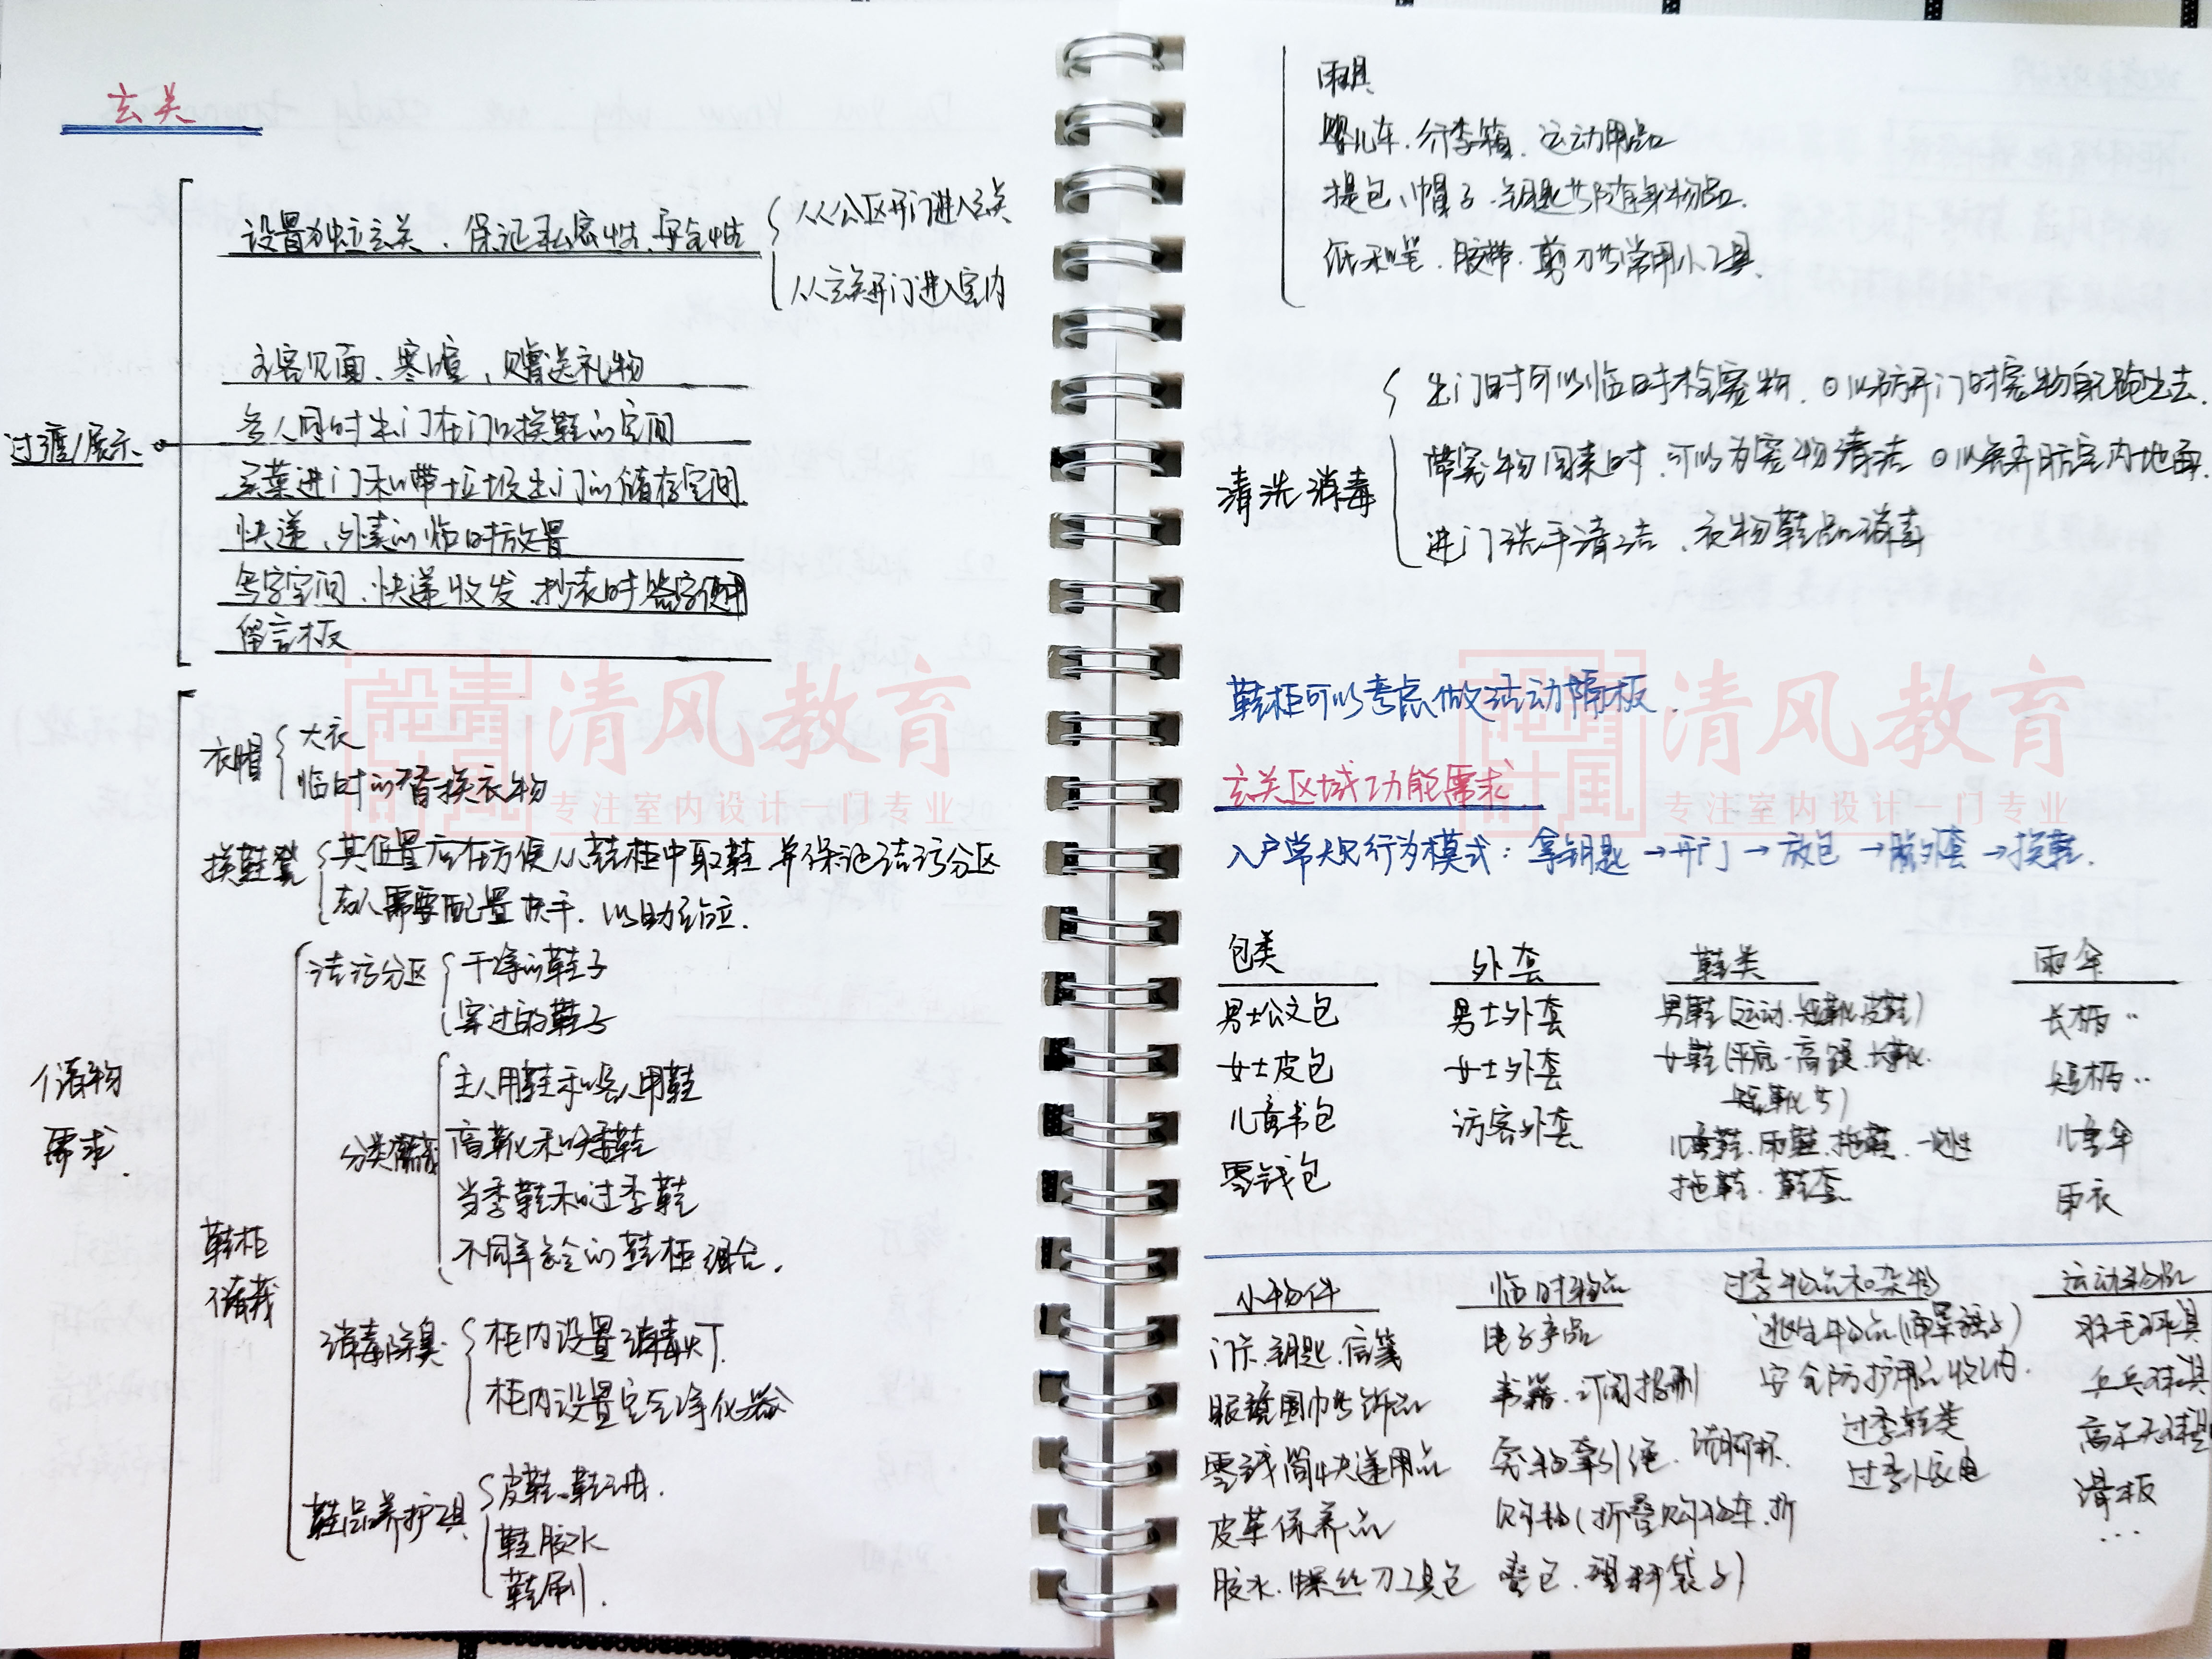 玄关
设置独立玄关、保证私密性、安全性
从公区开门进入玄关
从玄关开门进入室内
过渡/展示
主客见面、寒暄、赠送礼物
多人同时出门在门口换鞋的空间
买菜进门和带垃圾出门的储存空间
快递、外卖的临时放置
写字空间、快递收发、抄表时签字使用
留言板
储物
需求
衣帽
大衣
临时的替换衣物
换鞋凳
其位置应在方便从鞋柜中取鞋并保证洁污分区
老人需要配置扶手,以助站立.
鞋柜
储藏
洁污分区
干净的鞋子
穿过的鞋子
分类储藏
主人用鞋和客人用鞋
高靴和矮鞋
当季鞋和过季鞋
不同年龄的鞋柜组合.
消毒除臭
柜内设置消毒灯.
柜内设置空气净化器
鞋品养护工具
皮鞋、鞋油.
鞋胶水
鞋刷.
雨具
婴儿车、行李箱、运动用品
提包、帽子、钥匙等随身物品.
纸和笔、胶带、剪刀等常用小工具.
清洗消毒
出门时可以临时栓宠物,以防开门时宠物自己跑出去.
带宠物回来时,可以为宠物清洁以免弄脏室内地面.
进门洗手清洁、衣物鞋品消毒
鞋柜可以考虑做活动隔板.
玄关区域功能需求
入户常规行为模式:拿钥匙→开门→放包→脱外套→换鞋.
包类 外套 鞋类 雨伞
男士公文包 男士外套 男鞋(运动、短靴、皮鞋) 长柄〃
女士皮包 女士外套 女鞋(平底、高跟、长靴、 短柄〃
短靴等)
儿童书包 访客外套 儿童鞋、雨鞋、拖鞋、一次性 儿童伞
零钱包 拖鞋、鞋套 雨衣
小物件 临时物品 过季物品和杂物 运动物品
门卡、钥匙、信笺 电子产品 逃生物品(面罩、毯子) 羽毛球具
眼镜围巾等饰品 书籍、订阅报刊 安全防护用品收纳. 乒乓球具
零钱简快递用品 宠物牵引绳、 过季鞋类 高尔夫球具
皮革保养品 购物(折叠购物车、折 过季小家电 滑板
胶水、螺丝刀工具包 叠包、塑料袋子) ...
清风教育
专注室内设计一门专业
清风教育
专注室内设计一门专业